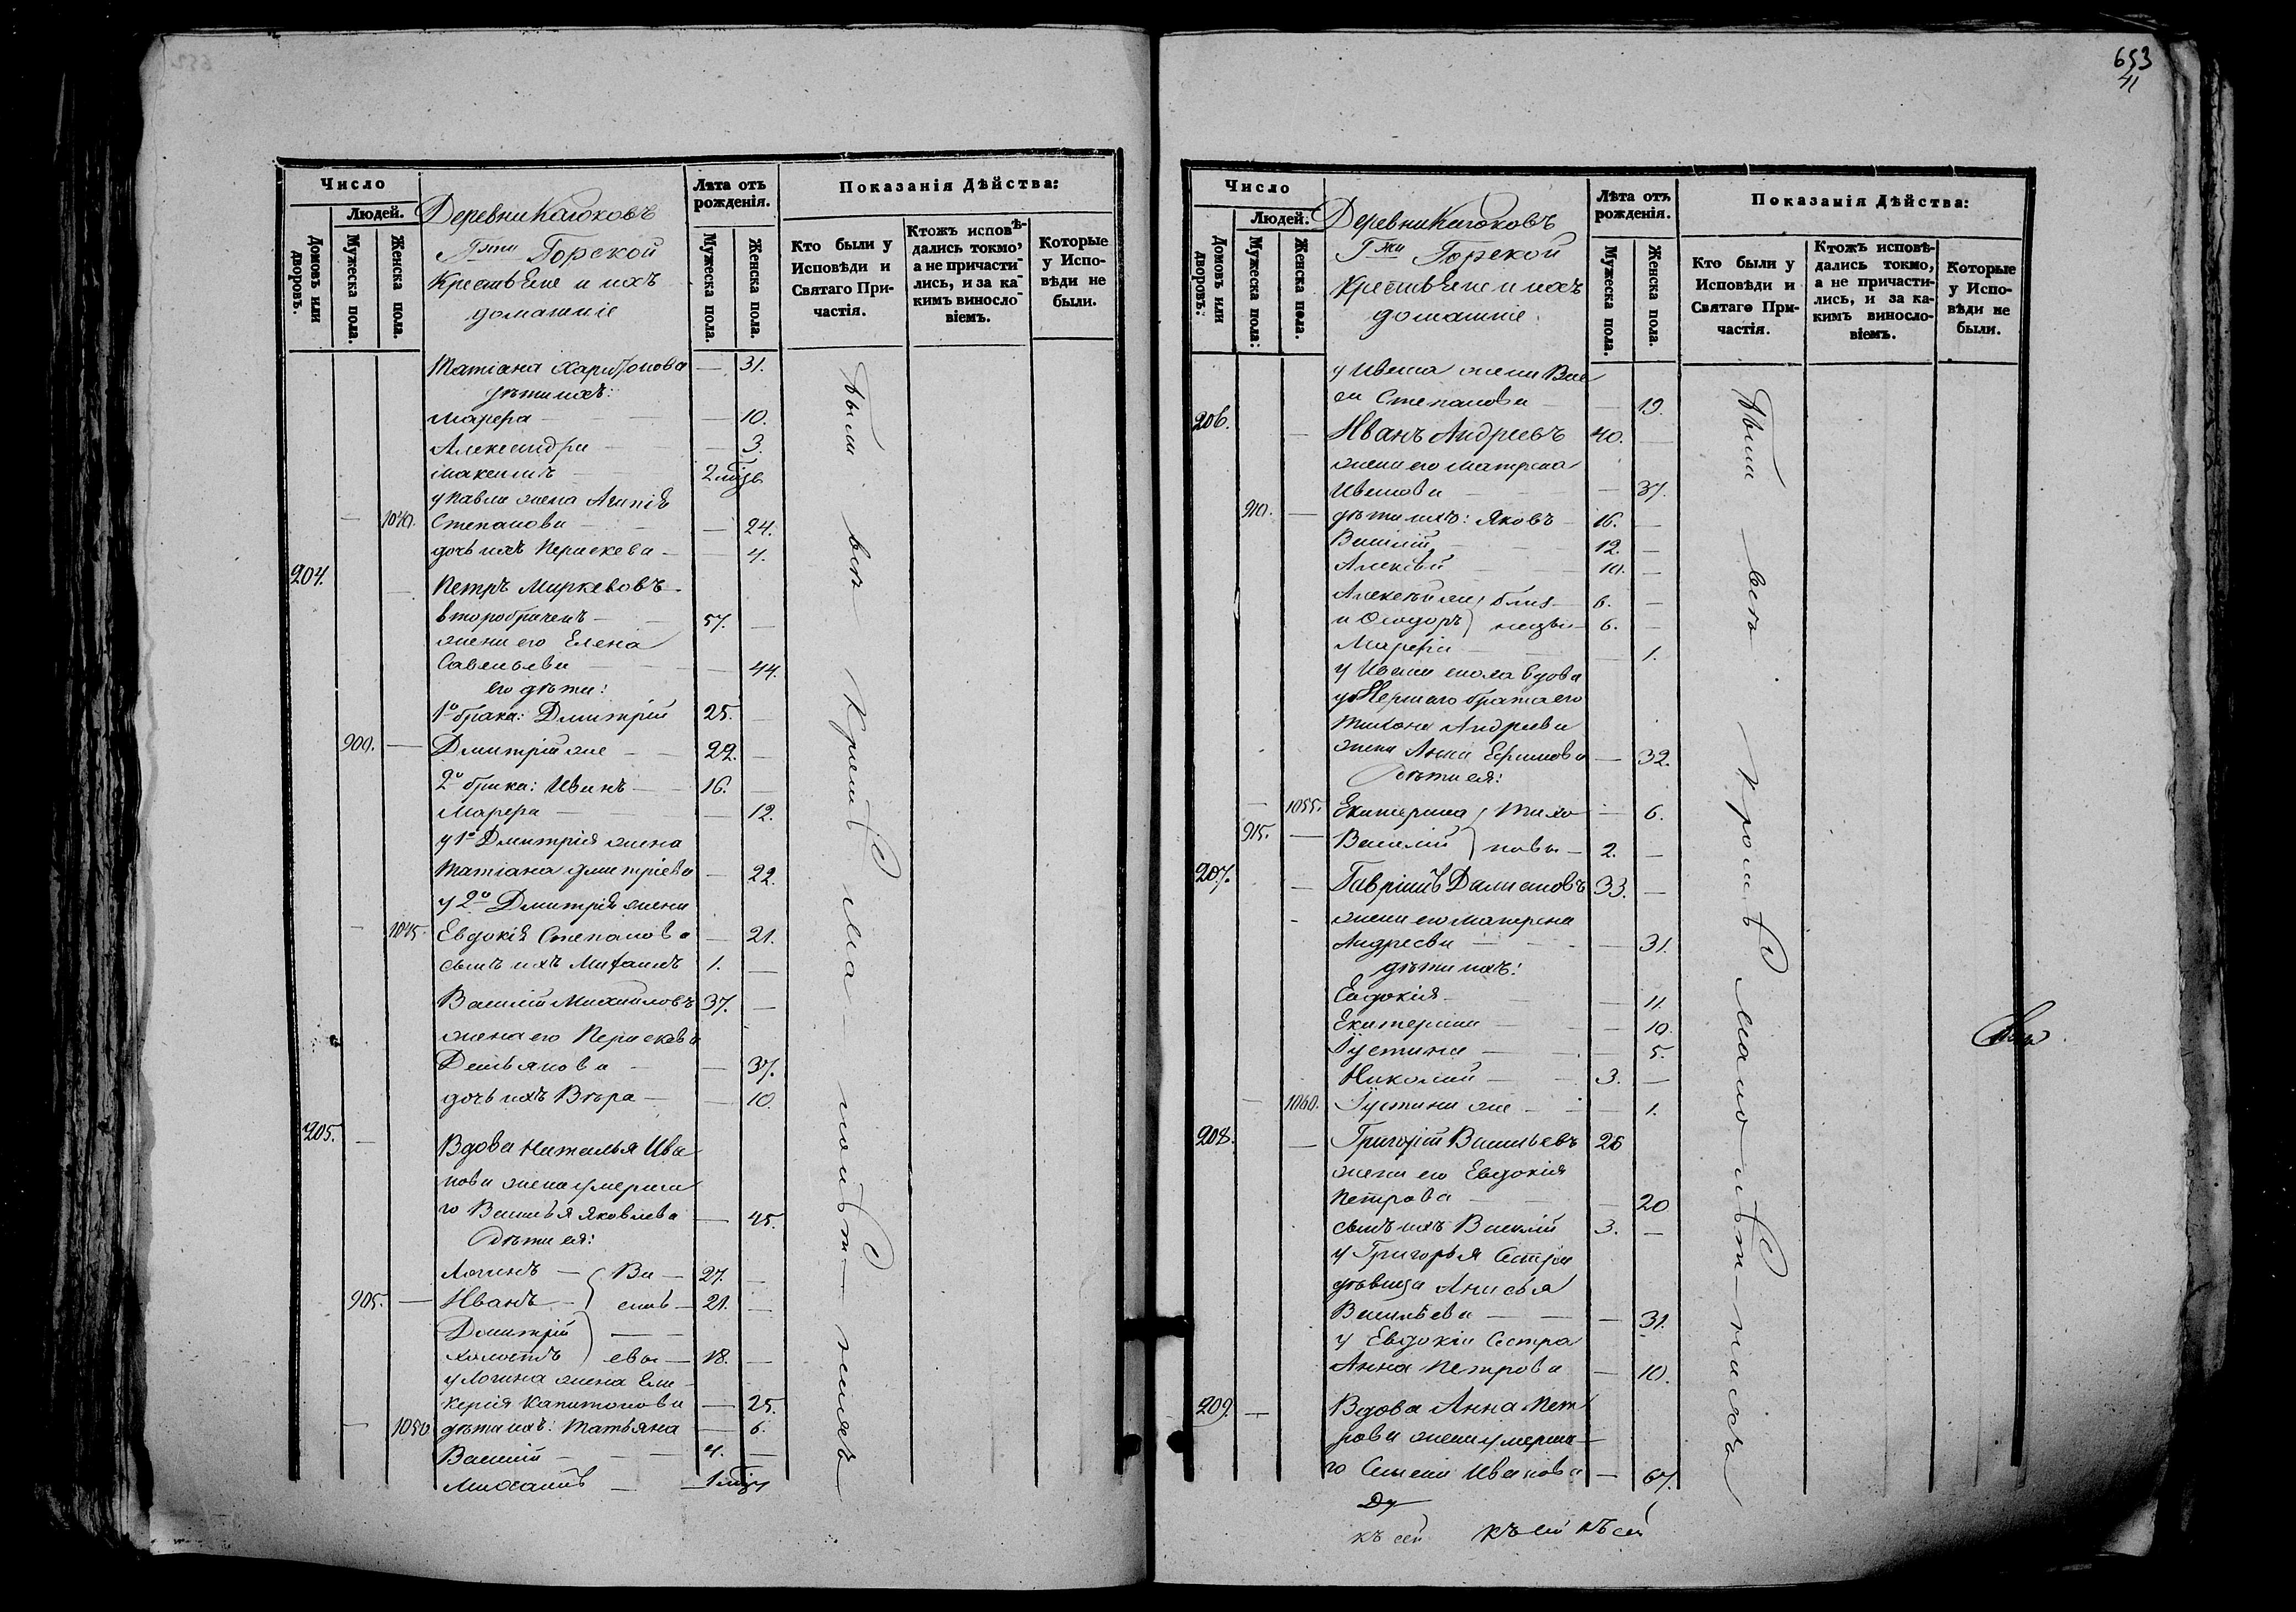 653
41
Число
Людей.
Домовъ или дворовъ.
Мужеска пола.
Женска пола.
Деревни
Гжи Горской
Крестьяне и ихъ
домашніе
Лѣта отъ рожденія.
Мужеска пола.
Женска пола.
Показанія Дѣйства:
Кто были у Исповѣди и Святаго Причастія.
Ктожъ исповѣдались токмо, а не причастились, и за какимъ винословіемъ.
Которые у Исповѣди не были.
Татіана Харитонова — 31.
дѣти ихъ:
Марѳа — 10.
Александра — 3.
Максимъ — 2
у Павла жена Агапія
— 1040. Степанова — 24.
дочь ихъ Параскева — 4.
204. — Петръ Марковъ
второбраченъ — 57. —
жена его Елена
Савельева — 44.
его дѣти:
1о брака: Дмитрій 25. —
900. — Дмитрій же — 22. —
2о брака: Иванъ — 16. —
Марѳа — 12.
у 1о Дмитрія жена
Татіана Дмитріева — 22.
у 2о Дмитрія жена
— 1045. Евдокія Степанова — 21.
сынъ ихъ Михаилъ 1. —
Василій Михайловъ 37. —
жена его Параскева
Демьянова — 37.
дочь ихъ Вѣра — 10.
205. — Вдова Наталья Ива
нова жена умерша
го Василья Яковлева — 45.
Дѣти ея:
Логинъ — Ва — 27. —
905. — Иванъ — силь — 21. —
Дмитрій —
холостъ евы — 18. —
у Логина жена Гли
керія Капитонова — 25.
— 1050 дѣти ихъ: Татьяна — 6.
Василій — 4. —
Михаилъ — 1
были всѣ кромѣ мало — лѣт — нихъ
Число
Людей.
Домовъ или дворовъ:
Мужеска пола:
Женска пола.
Деревни
Гжи Горской
Крестьяне и ихъ
домашніе.
Лѣта отъ рожденія.
Мужеска пола.
Женска пола.
Показанія Дѣйства:
Кто были у Исповѣди и Святаго Причастія.
Ктожъ исповѣдались токмо, а не причастились, и за какимъ винословіемъ.
Которые у Исповѣди не были.
у Ивана жена Вас
са Степанова — 19.
206. — Иванъ Андреевъ 40. —
жена его Матрена
Иванова — 37.
910. — дѣти ихъ: Яковъ — 16. —
Василій — 12. —
Алексѣй — 10. —
Алексѣй же близ — 6. —
и Ѳеодоръ нецы — 6. —
Марѳа — 1.
у Ивана сноха вдова
умершаго брата его
Тихона Андреева
жена Анна Ефимова — 32.
Дѣти ея:
— 1055. Екатерина Тихо — 6.
915. — Василій новы — 2. —
207. — Гавріилъ Дамиановъ 33. —
- жена его Матрена
Андреева — 31.
дѣти ихъ:
Евдокія — 11.
Екатерина — 10.
Іустина — 5.
Николай — 3. —
— 1060. Іустина же — 1.
208. — Григорій Васильевъ 26
жена его Евдокія
Петрова — 20
сынъ ихъ Василій 3. —
у Григорья Сестра
дѣвица Анисья
Васильева — 31.
у Евдокіи Сестра
Анна Петрова — 10.
209. — Вдова Анна Пет
рова жена умерша —
го Семена Иванова — 67.
были всѣ кромѣ мало — лѣт — нихъ
Ду
къ сей къ сей къ сей